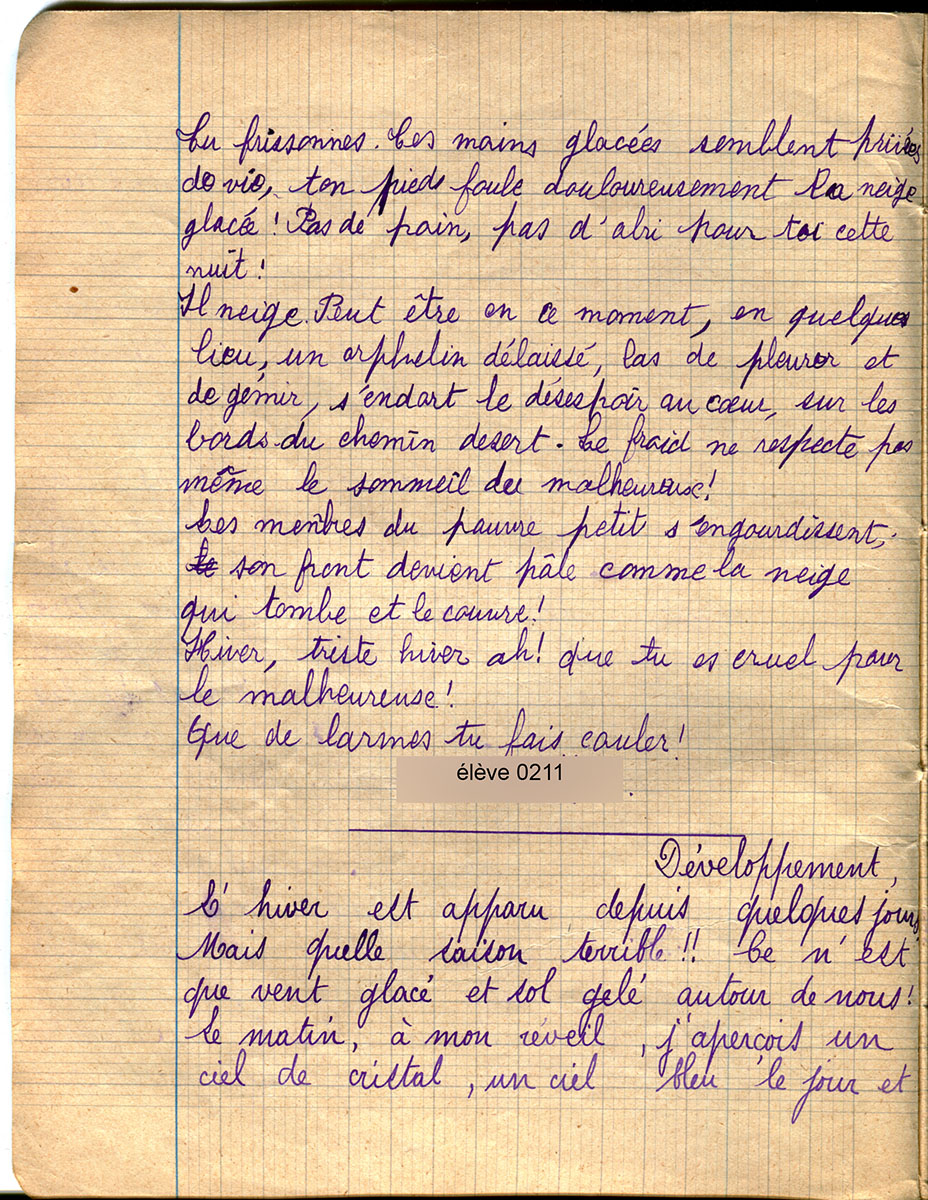 Tu frissonnes. Tes mains glacées semblent privées
de vie, ton pieds foule douloureusement la neige
glacée ! Pas de pain, pas d'abri pour toi cette
nuit !
Il neige. Peut être en ce moment, en quelques
lieu, un orphelin délaissé, las de pleurer et
de gémir, s'endort le désespoir au cœur, sur les
bords du chemin desert. Le froid ne respecte pas
même le sommeil du malheureuse !
Les membres du pauvre petit s'engourdissent,
le son front devient pâle comme la neige
qui tombe et le couvre !
Hiver, triste hiver ah ! que tu es cruel pour
le malheureuse !
Que de larmes tu fais couler !
élève 0211
Développement,
L'hiver est apparu depuis quelques jours
Mais quelle saison terrible !! Ce n'est
que vent glacé et sol gelé autour de nous !
Le matin, à mon réveil, j'aperçois un
ciel de cristal, un ciel bleu le jour et